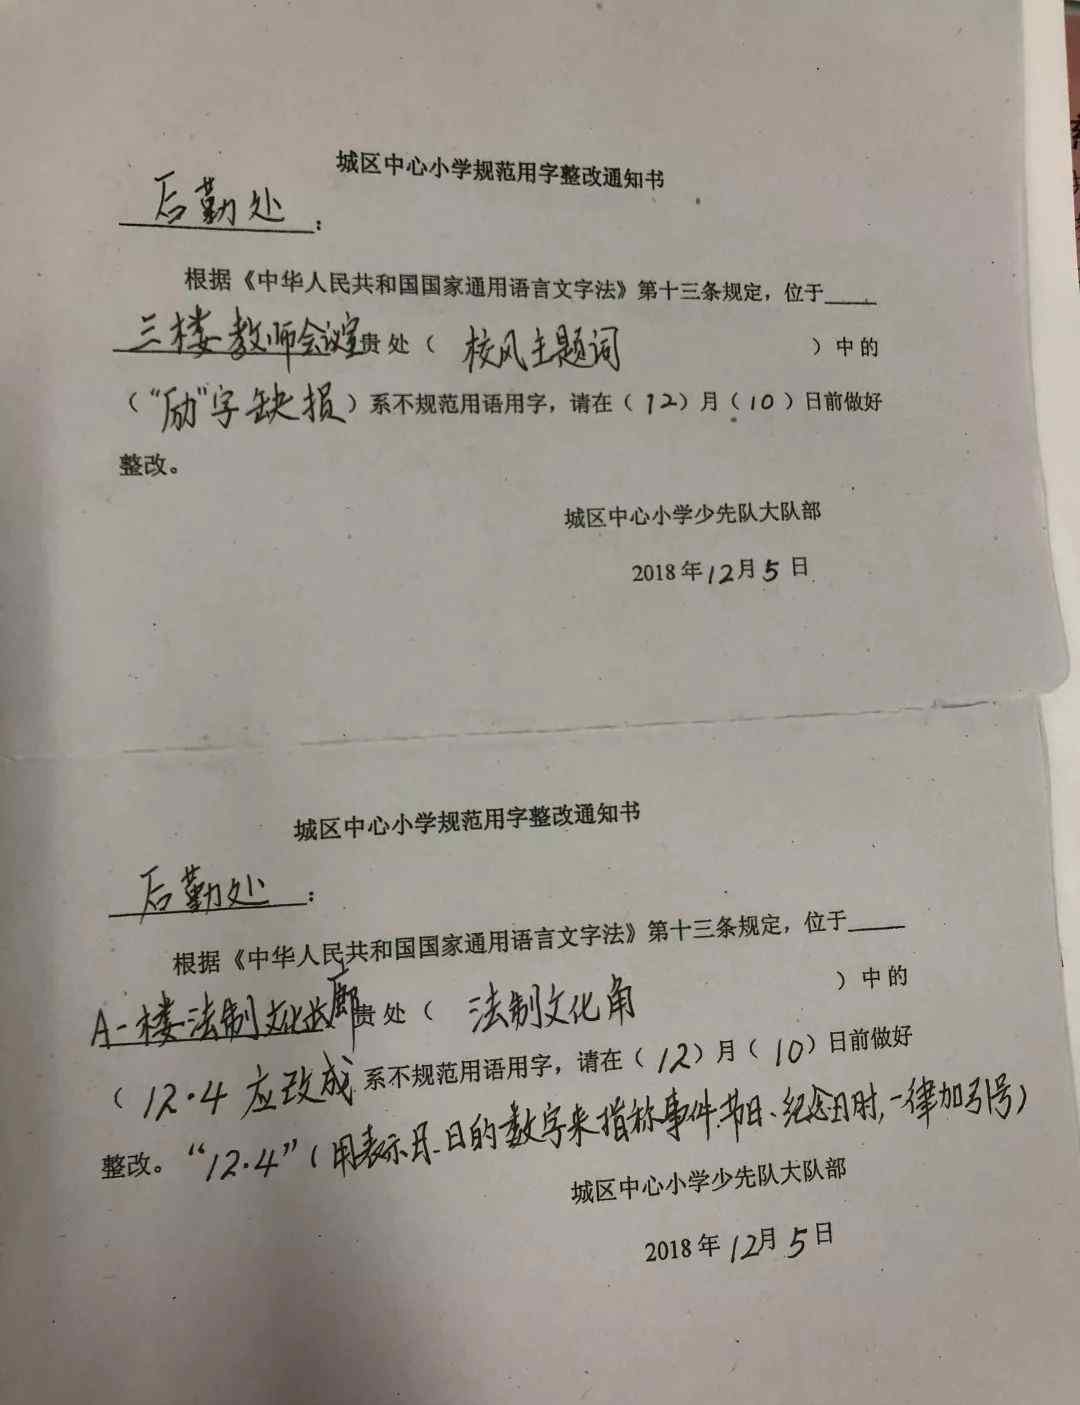 城区中心小学规范用字整改通知书
后勤处：
根据《中华人民共和国国家通用语言文字法》第十三条规定，位于
三楼教师会议室贵处（ 校风主题词 ）中的
（“励”字缺损）系不规范用语用字，请在（12）月（10）日前做好
整改。
城区中心小学少先队大队部
2018年12月5日
城区中心小学规范用字整改通知书
后勤处：
根据《中华人民共和国国家通用语言文字法》第十三条规定，位于
A一楼法制文化长廊贵处（ 法制文化角 ）中的
（12·4应改成 系不规范用语用字，请在（12）月（10）日前做好
整改。“12·4”（用表示月、日的数字来指称事件、节日、纪念日时，一律加引号）
城区中心小学少先队大队部
2018年12月5日